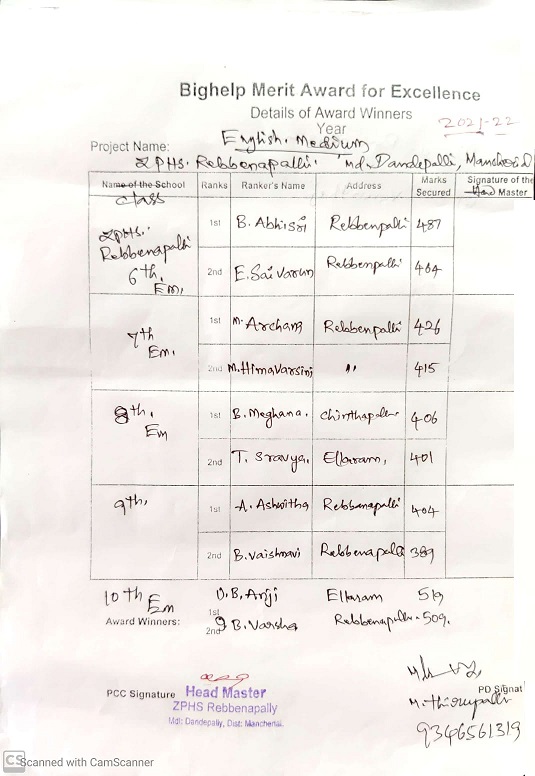 Bighelp Merit Award for Excellence
Details of Award Winners
2021-22
Year
English. Medium
Project Name:
ZPHS. Rebbenapalli. Md. Dandepalli, Mancherial
Name of the School Ranks Ranker's Name Address Marks Secured Signature of the Head Master
class
ZPHS.
Rebbenapalli
6th,
Em,
1st B. Abhisri Rebbenpalli 487
2nd E. Sai Varun Rebbenpalli 464
7th
Em.
1st M. Archana Rebbenpalli 426
2nd M. Himavarsini " 415
8th,
Em
1st B. Meghana. 406
2nd T. Sravya. Ellaram, 401
9th,
1st A. Ashwitha Rebbenapalli 404
2nd B. Vaishnavi Rebbenapalli 389
10th Em
1st Ellaram 519
Award Winners: 2nd B. Varsha Rebbenapalli - 509.
PCC Signature
Head Master
ZPHS Rebbenapally
Mdl: Dandepally, Dist: Mancherial.
PD Signat
M. Thirupathi
9346561319
CS Scanned with CamScanner